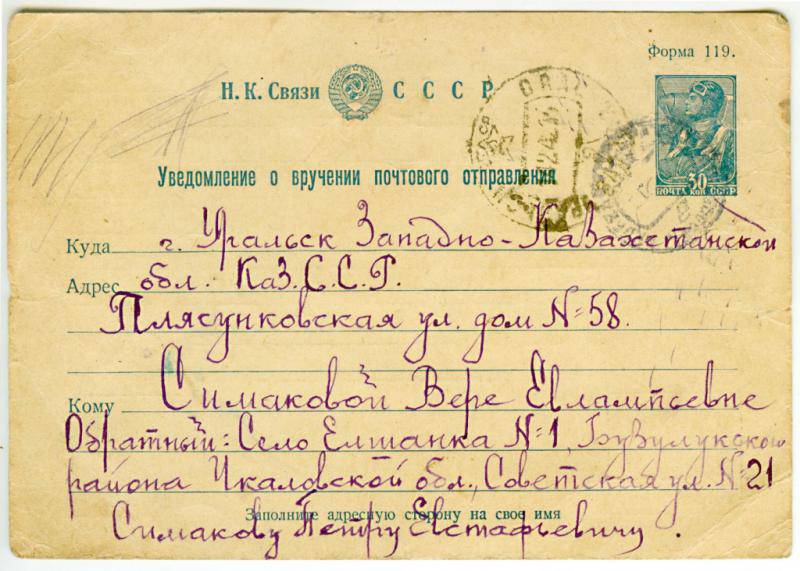 Форма 119.
Н. К. Связи СССР
30
ПОЧТА КОП СССР
Уведомление о вручении почтового отправления
Куда г. Уральск Западно-Казахстанской
Адрес обл. Каз.С.С.Р.
Плясунковская ул. дом №58.
Кому Симаковой Вере Евлампьевне
Обратный: Село Елшанка №1, Бузулукского
района Чкаловской обл., Советская ул. №21
Заполните адресную сторону на свое имя
Симакову Петру Евстафьевичу.